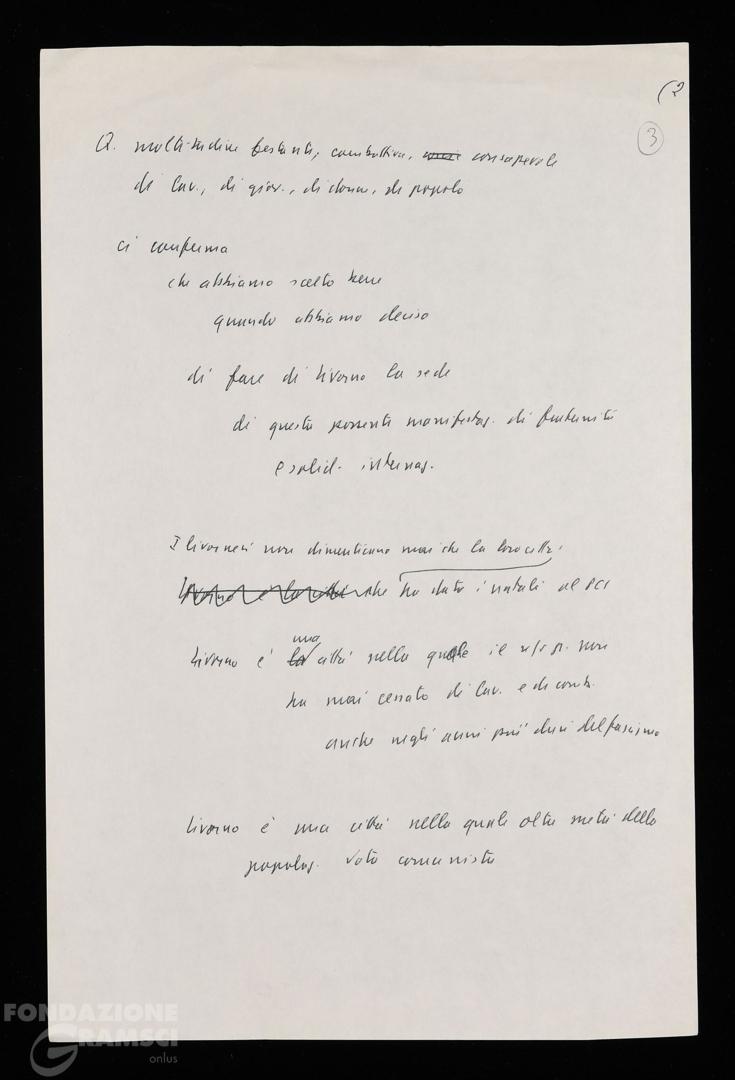 (2
3
Q. moltitudine festante, combattiva, consapevole
di lav., di giov., di donne, di popolo
ci conferma
che abbiamo scelto bene
quando abbiamo deciso
di fare di Livorno la sede
di questa possente manifestaz. di fraternità
e solid. internaz.
I livornesi non dimenticano mai che la loro città
Livorno è la città che ha dato i natali al PCI
una
Livorno è la città nella quale il non
ha mai cessato di lav. e di comb.
anche negli anni più duri del fascismo
Livorno è una città nella quale oltre metà della
popolaz. vota comunista
FONDAZIONE
GRAMSCI
onlus